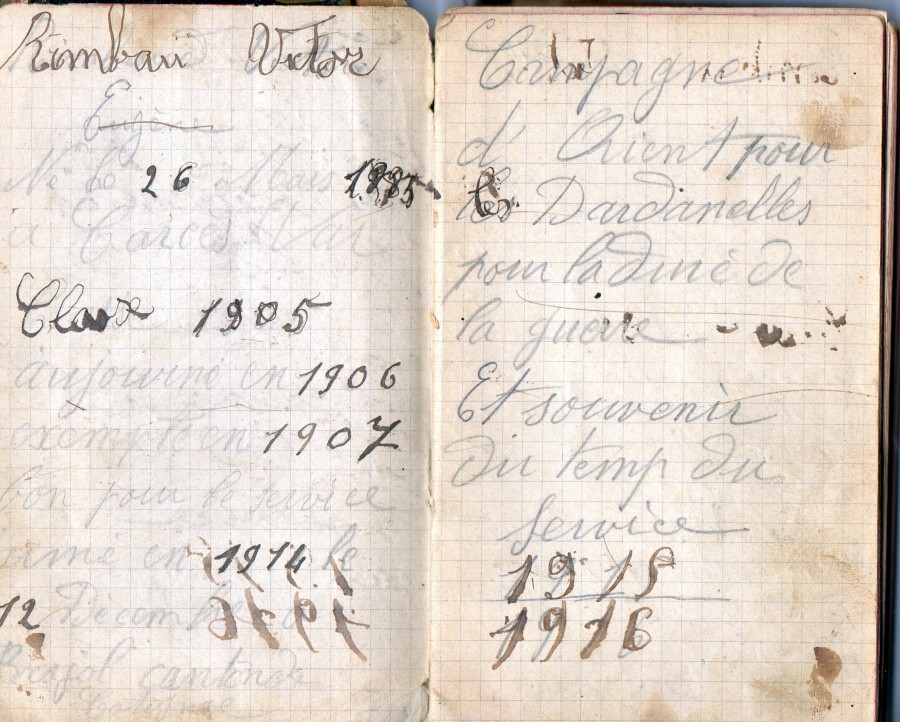 Rimbaud Victor
Eugène
Né le 26 Mars 1885
à Carces Var
Classe 1905
ajourné en 1906
exempté en 1907
bon pour le service
armé en 1914 le
12 Décembre
cantonda
Campagne
d'Orient pour
les Dardanelles
pour la duré de
la guerre
Et souvenir
du temp du
service
1915
1916